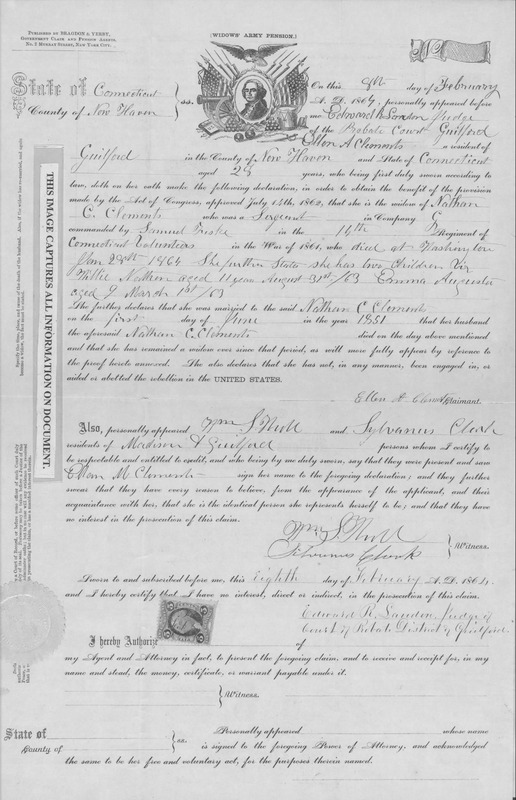 PUBLISHED BY BRAGDON & VERBY,
GOVERNMENT CLAIM AND PENSION AGENTS,
No. 5 MURRAY STREET, NEW YORK CITY.
(WIDOWS' ARMY PENSION.)
State of Connecticut
County of New Haven } ss.
On this 8th day of February
A. D. 1864, personally appeared before
me Edward R Landon Judge
of the Probate Court Guilford
Ellen A Clements a resident of
Guilford in the County of New Haven and State of Connecticut
aged 28 years, who being first duly sworn according to
law, doth on her oath make the following declaration, in order to obtain the benefit of the provision
made by the Act of Congress, approved July 14th, 1862, that she is the widow of Nathan
C. Clements who was a Sergeant in Company G
commanded by Samuel Fiske in the 14th Regiment of
Connecticut Volunteers in the War of 1861, who died at Washington
Jan 28th 1864 She further States she has two Children Viz
Willie Nathan aged 11 year August 31st/63 Emma Augusta
aged 9 March 1st/63
She further declares that she was married to the said Nathan C Clements
on the first day of June in the year 1851 that her husband
the aforesaid Nathan C. Clements died on the day above mentioned
and that she has remained a widow ever since that period, as will more fully appear by reference to
the proof hereto annexed. She also declares that she has not, in any manner, been engaged in, or
aided or abetted the rebellion in the UNITED STATES.
Ellen A Claimant.
Also, personally appeared Wm S and Sylvanus Clark
residents of Madison & Guilford persons whom I certify to
be respectable and entitled to credit, and who being by me duly sworn, say that they were present and saw
Ellen M Clements sign her name to the foregoing declaration; and they further
swear that they have every reason to believe, from the appearance of the applicant, and their
acquaintance with her, that she is the identical person she represents herself to be; and that they have
no interest in the prosecution of this claim.
Wm S
Sylvanus Clark } Witness.
Sworn to and subscribed before me, this Eighth day of February A. D. 1864,
and I hereby certify that I have no interest, direct or indirect, in the prosecution of this claim.
Edward R. Landon, Judge of
Court of Probate District of Guilford
I hereby Authorize of
my Agent and Attorney in fact, to present the foregoing claim, and to receive and receipt for, in my
name and stead, the money, certificate, or warrant payable under it.
} Witness.
State of
County of } ss.
Personally appeared whose name
is signed to the foregoing Power of Attorney, and acknowledged
the same to be her free and voluntary act, for the purposes therein named.
THIS IMAGE CAPTURES ALL INFORMATION ON DOCUMENT.